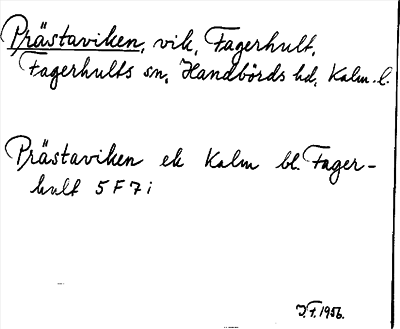 Prästaviken, vik, Fagerhult,
Fagerhults sn, Handbörds hd, Kalm. l.
Prästaviken ek Kalm bl. Fager-
hult 5 F 7 i
J. F. 1956.